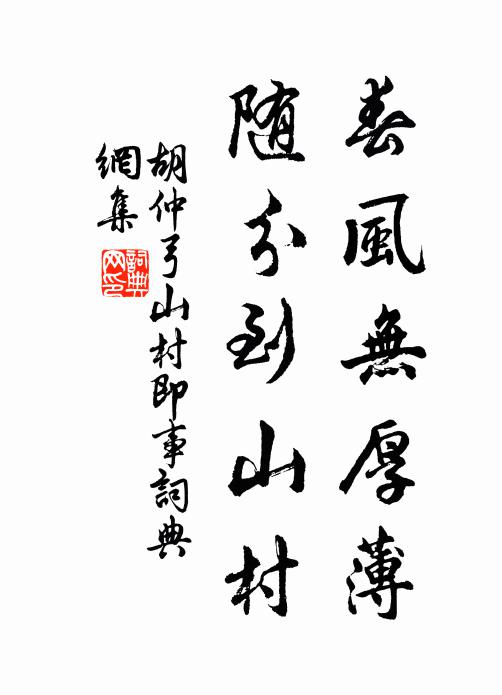 春風無厚薄
随分到山村
胡仲弓山村即事詞典
網集
詞典
网印